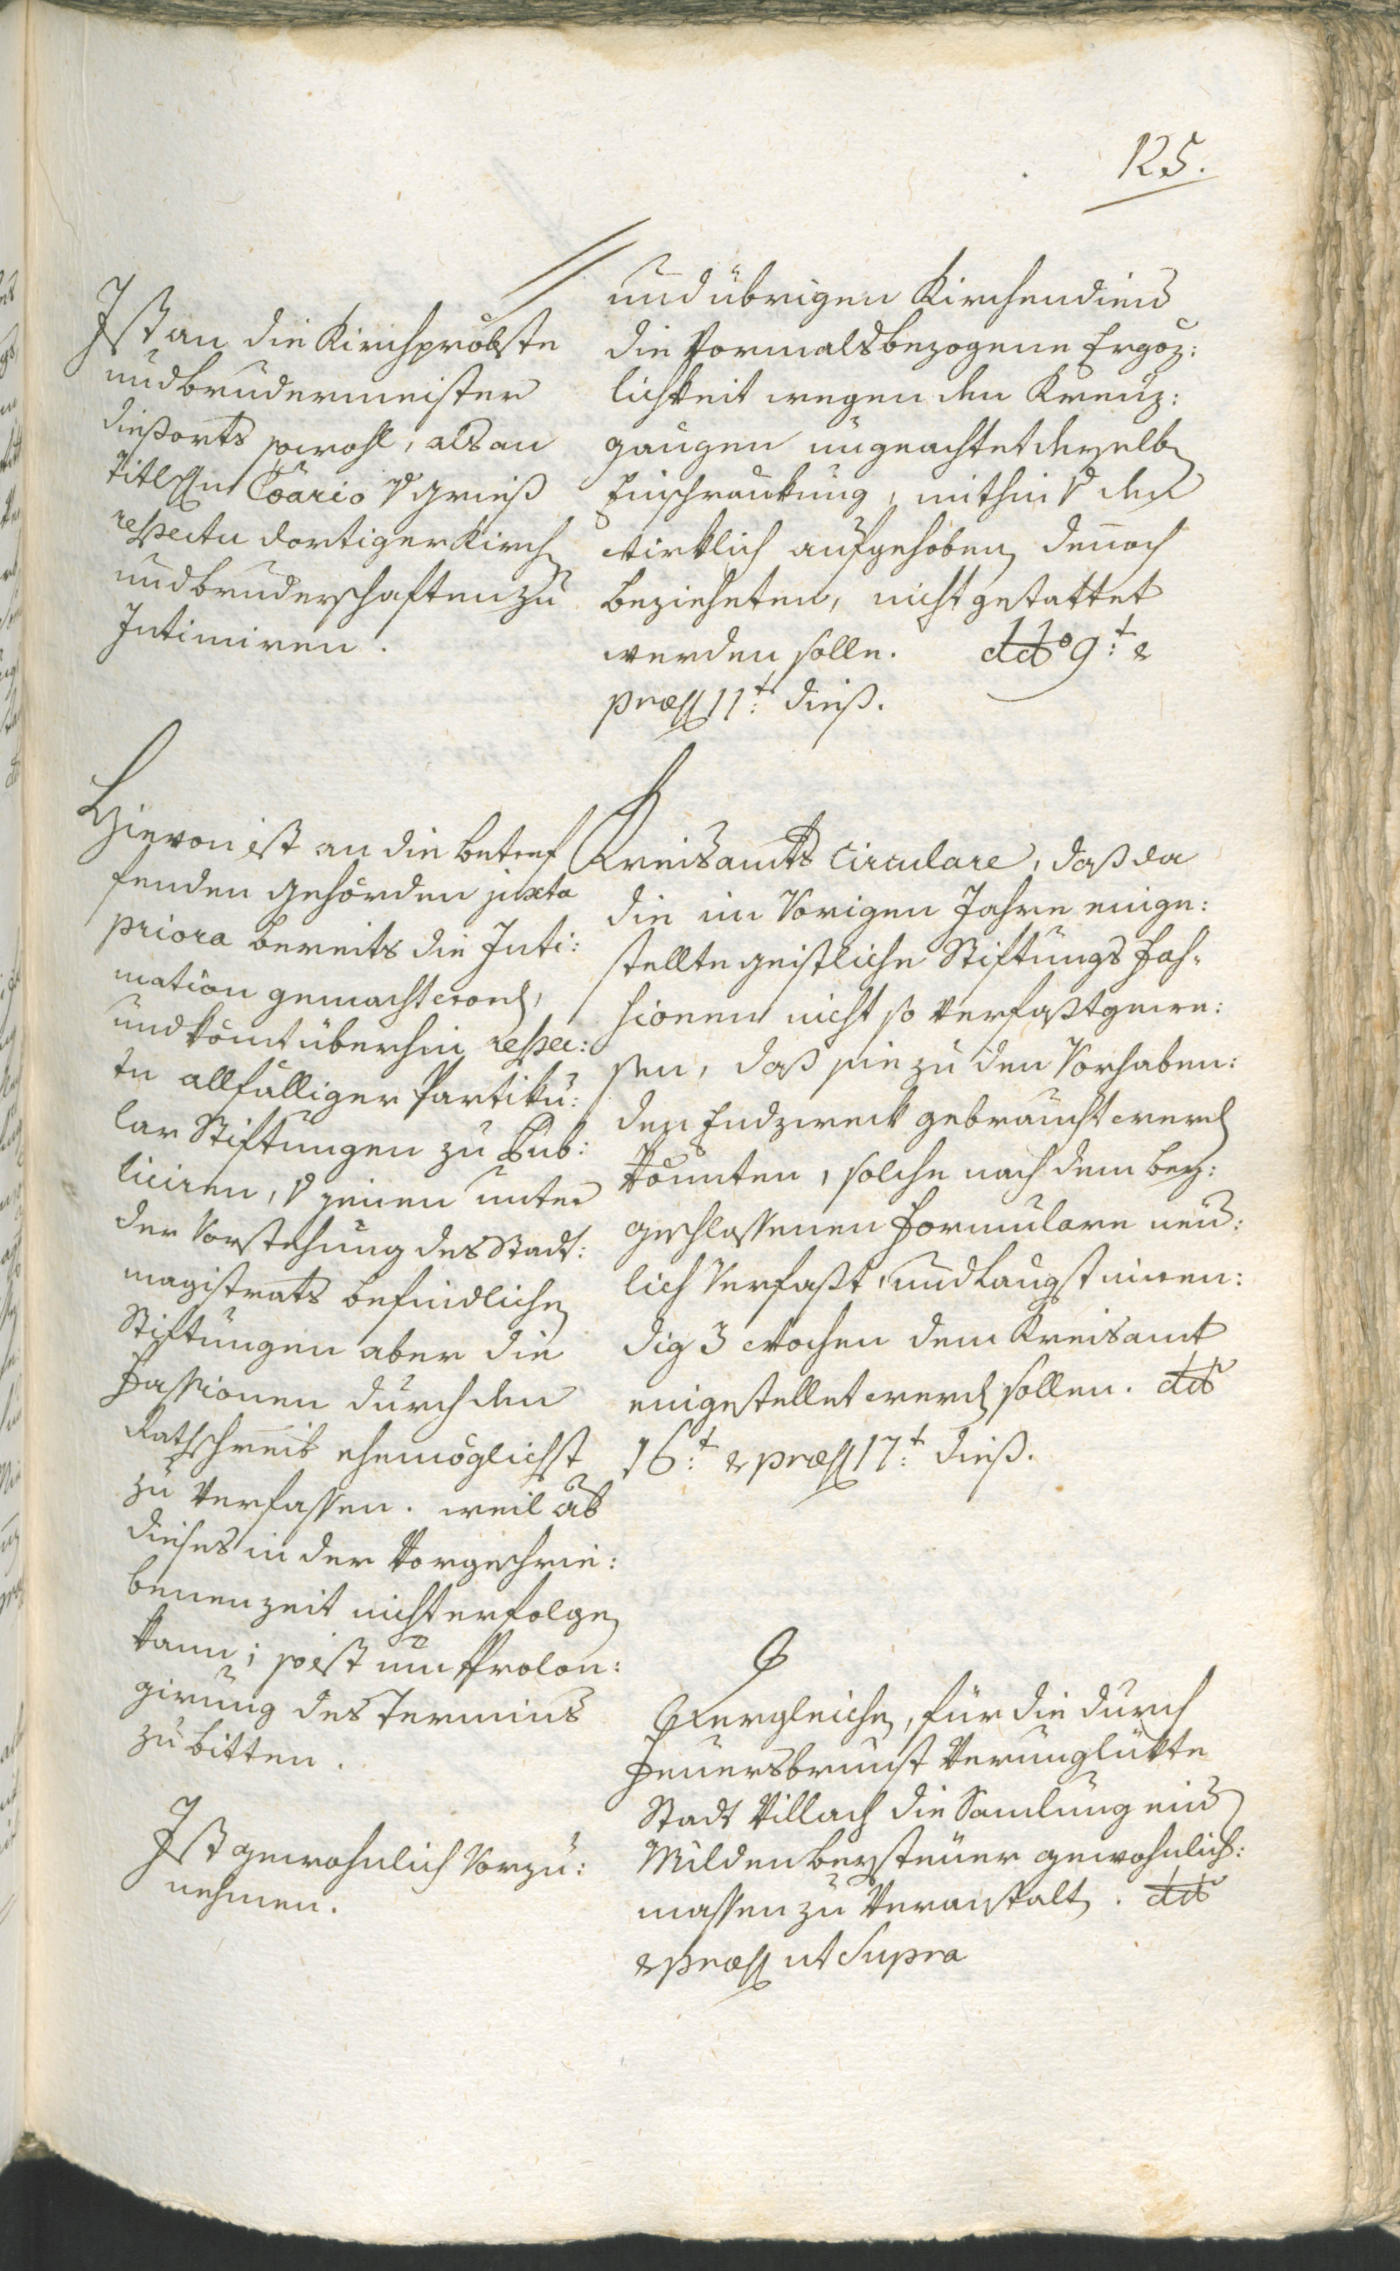 125.
Ist an die Kirchpröbste
und bruedermeister
dießorts sowohl, als an
Titl Hn Cöario v Gries
respectu dortiger Kirch
und bruderschaften zu
Intimiren.
und übrigen Kirchendiens
die vormals bezogene Ergöz:
lichkeit wegen den Kreuz:
gängen ungeachtet derselb
Einschränkung, mithin v der
wirklich aufgehoben, dennoch
bezieheten, nicht getattet
werden solle. ddo 9t: &
præs 11t: dieß.
Hievon ist an die betref
fenden gehörden juxta
priora bereits die Inti:
mation gemacht word,
und kömt überhin respec:
tu allfälliger Partiku:
lar Stiftungen zu Pub:
liciren, v jenen unter
der Vorstehung des Stadt:
magistrats befindlichen
Stiftungen aber die
Fassionen durch den
Rathschreib ehemöglichst
zu verfassen. weil ab
dieses in der Vorgeschrie:
benen zeit nicht erfolgen
kann; so ist um Prolon:
girung des Termins
zu bitten.
Kreisamts Circulare, daß da
die im Vorigen Jahre einge:
stellte geistliche Stiftungs Fas=
sionen nicht so verfaßt gewe:
sen, daß sie zu den Vorhaben:
den Endzweck gebraucht werd
könnten, solche nach dem bey:
geschlossenen Formulare neu:
lich Verfaßt, und längst innen:
dig 3 Wochen dem Kreisamt
eingestellet werd sollen. ddo
16t: & præs 17t: dieß.
Ist gewohnlich Vorzu:
nehmen.
Dergleichen, für die durch
Feuersbrunst Verunglükte
Stadt Villach die Samlung eins
Milden beysteuer gewohnlich:
massen zu Veranstalt. ddo
& præs ut Supra